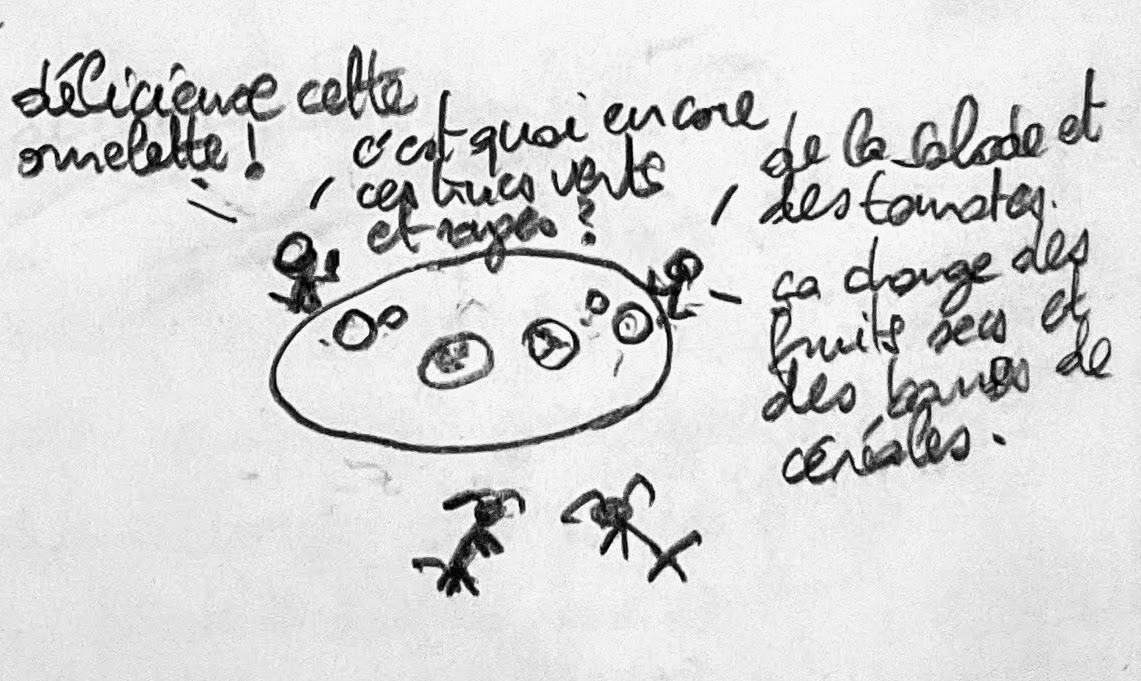 délicieuse cette
omelette !
c'est quoi encore
ces trucs verts
et rouges ?
de la salade et
des tomates.
ça change des
fruits secs et
des barres de
céréales.